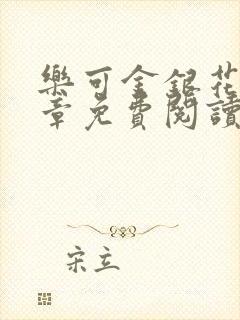 樂可金銀花
章免費閱讀
宋立